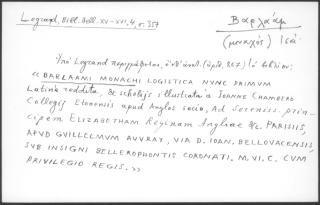 Legrand, Bibl. Hell. XV-XVI, 4, σ. 357
Βαρλαάμ
(μοναχός)
Ὑπὸ Legrand περιγράφεται,
« BARLAAMI MONACHI LOGISTICA NUNC PRIMUM
Latinè reddita, & scholijs illustrata à IOANNE CHAMBERO
Collegij Etonensis apud Anglos socio, Ad Sereniss. prin-
cipem ELIZABETHAM Reginam Angliae &c. PARISIIS,
APUD GUILLELMUM AUVRAY, VIA D. IOAN. BELLOVACENSIS,
SUB INSIGNI BELLEROPHONTIS CORONATI. M. VI. C. CUM
PRIVILEGIO REGIS. »